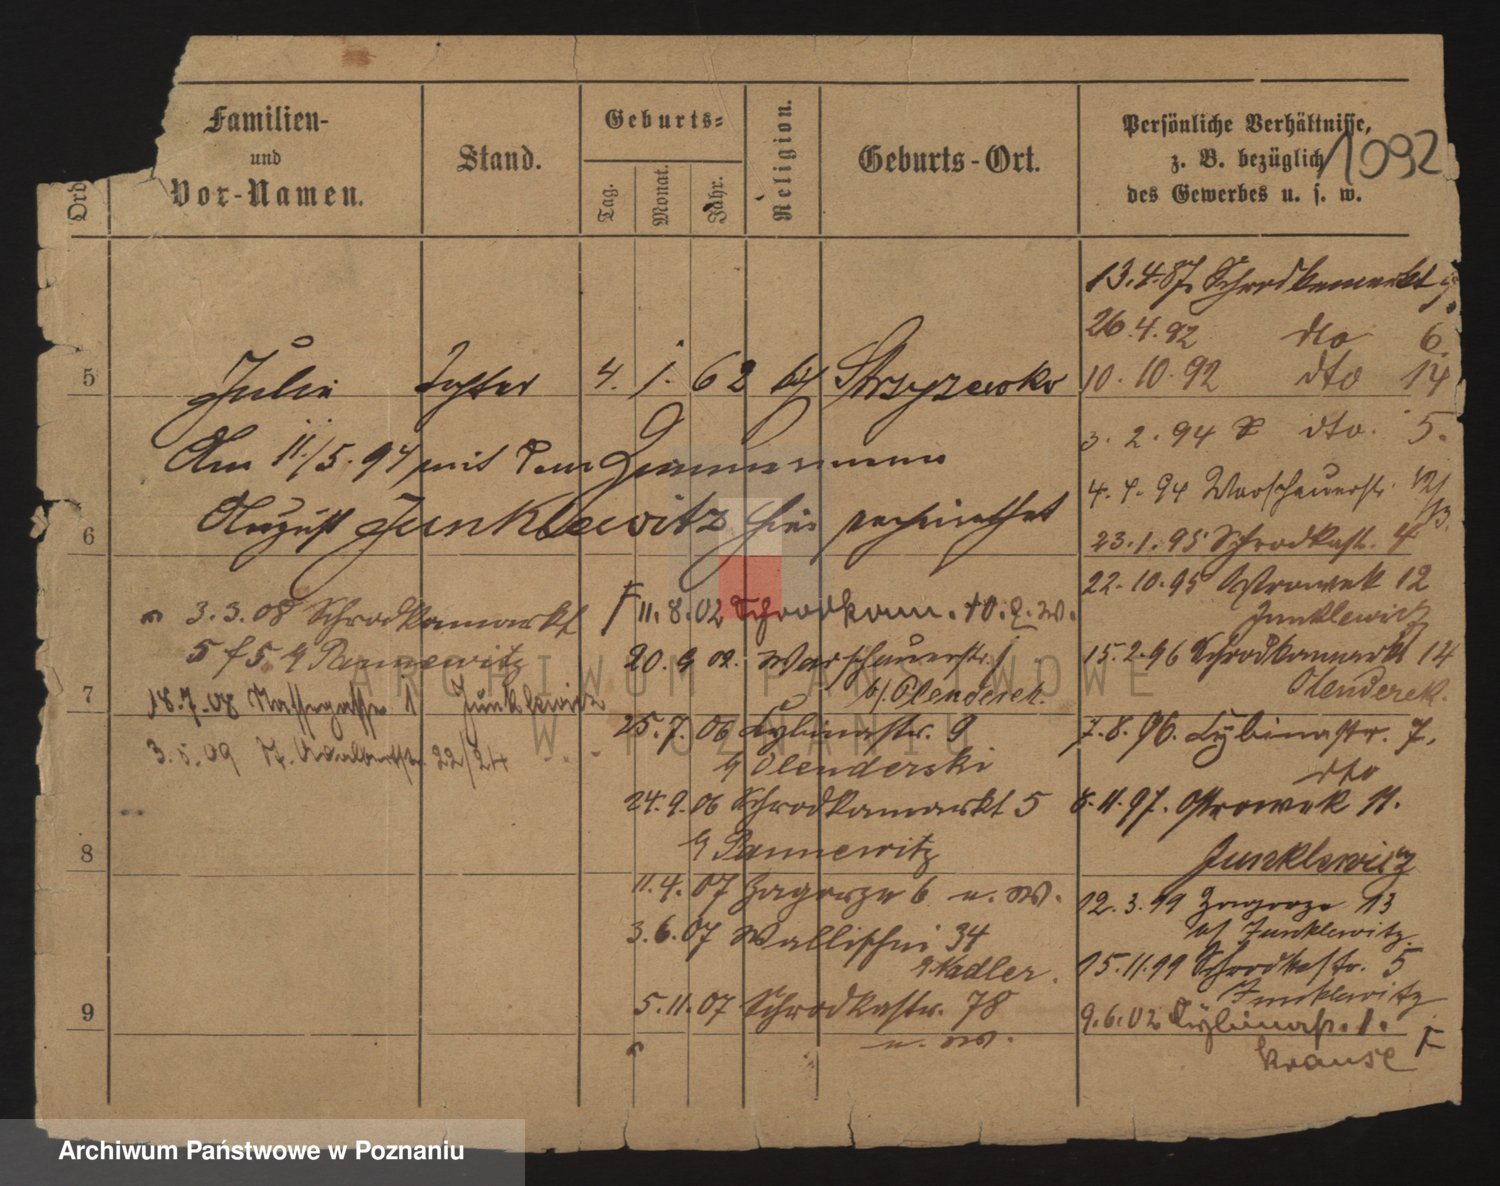 Ord
Familien-
und
Vor-Namen.
Stand.
Geburts-
Tag.
Monat.
Jahr.
Religion.
Geburts-Ort.
Persönliche Verhältnisse,
z. B. bezüglich
des Gewerbes u. s. w.
1092
5
Julie Tochter 4. 1. 62 Strzyzewko
Am 11/5.94 mit dem Zimmermann
6
August Junklewitz hier verheirathet
3.3.08 Schrodkamarkt
5 Pannewitz
7
18.7.08 1 Junklewitz
3.5.09 22/24
8
9
11.8.02 Schrodkam. 10. u.w.
20.9 02. Warschauerstr. 1
b/ Olenderek.
25.7.06 Cybinastr. 9
Olenderski
24.9.06 Schrodkamarkt 5
Pannewitz
11.4.07 Zagorze 6 u. W.
3.6.07 Wallischei 34
Nadler.
5.11.07 Schrodkastr. 78
u. W.
13.4.87. Schrodkamarkt
26.4.92 dto 6.
10.10.92 dto 14
3.2.94 dto. 5.
4.4.94 Warschauerstr. 12/13.
23.1.95 Schrodkastr. 4
22.10.95 Ostrowek 12
Junklewitz
15.2.96 Schrodkamarkt 14
Olenderek.
7.8.96. Cybinastr. 7.
dto
8.11.97. Ostrowek 11.
Junklewitz
12.3.99 Zagorze 13
b/ Junklewitz.
15.11.99 Schrodkastr. 5
Junklewitz
9.6.02 Cybinastr. 1.
Krause
ARCHIWUM PAŃSTWOWE
W POZNANIU
Archiwum Państwowe w Poznaniu